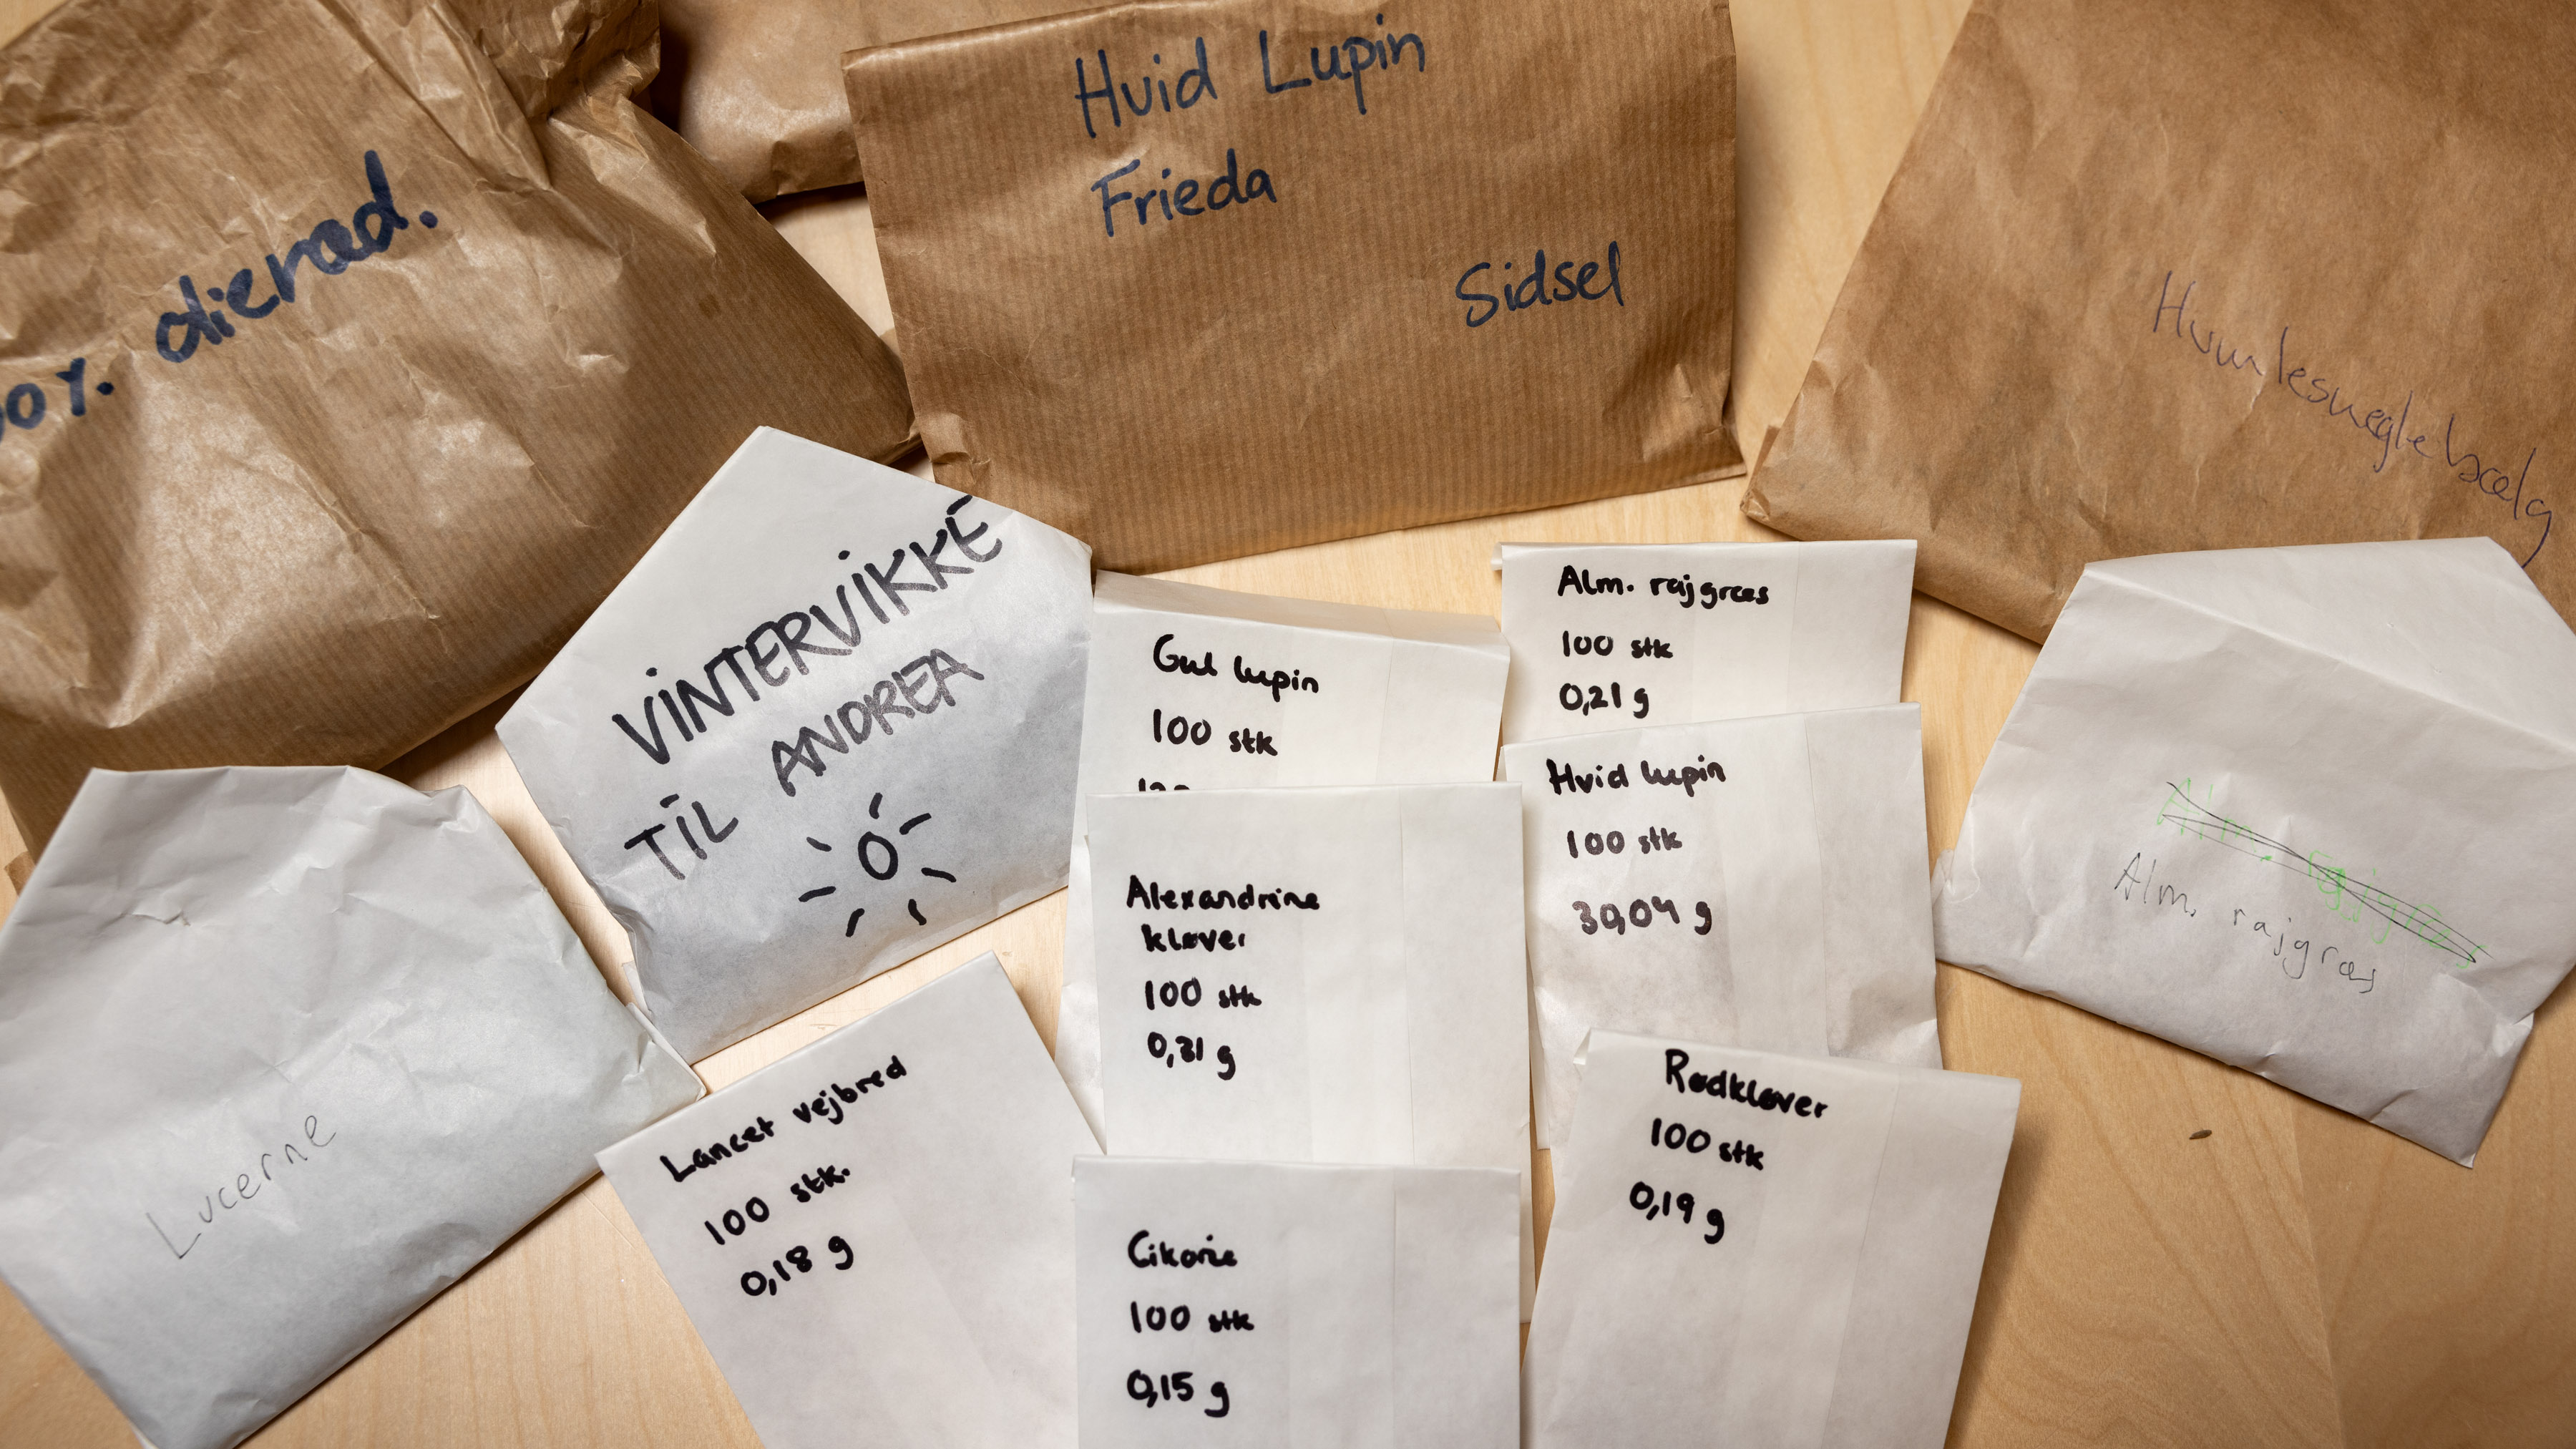 olieræd.
Hvid Lupin
Frieda
Sidsel
Humlesneglebælg
VINTERVIKKE
TIL ANDREA
Gul lupin
100 stk
Alm. rajgræs
100 stk
0,21 g
Hvid lupin
100 stk
30,04 g
Alexandrine
kløver
100 stk
0,31 g
Alm. rajgræs
Alm. rajgræs
Lucerne
Lancet vejbred
100 stk.
0,18 g
Cikorie
100 stk
0,15 g
Rødkløver
100 stk
0,19 g